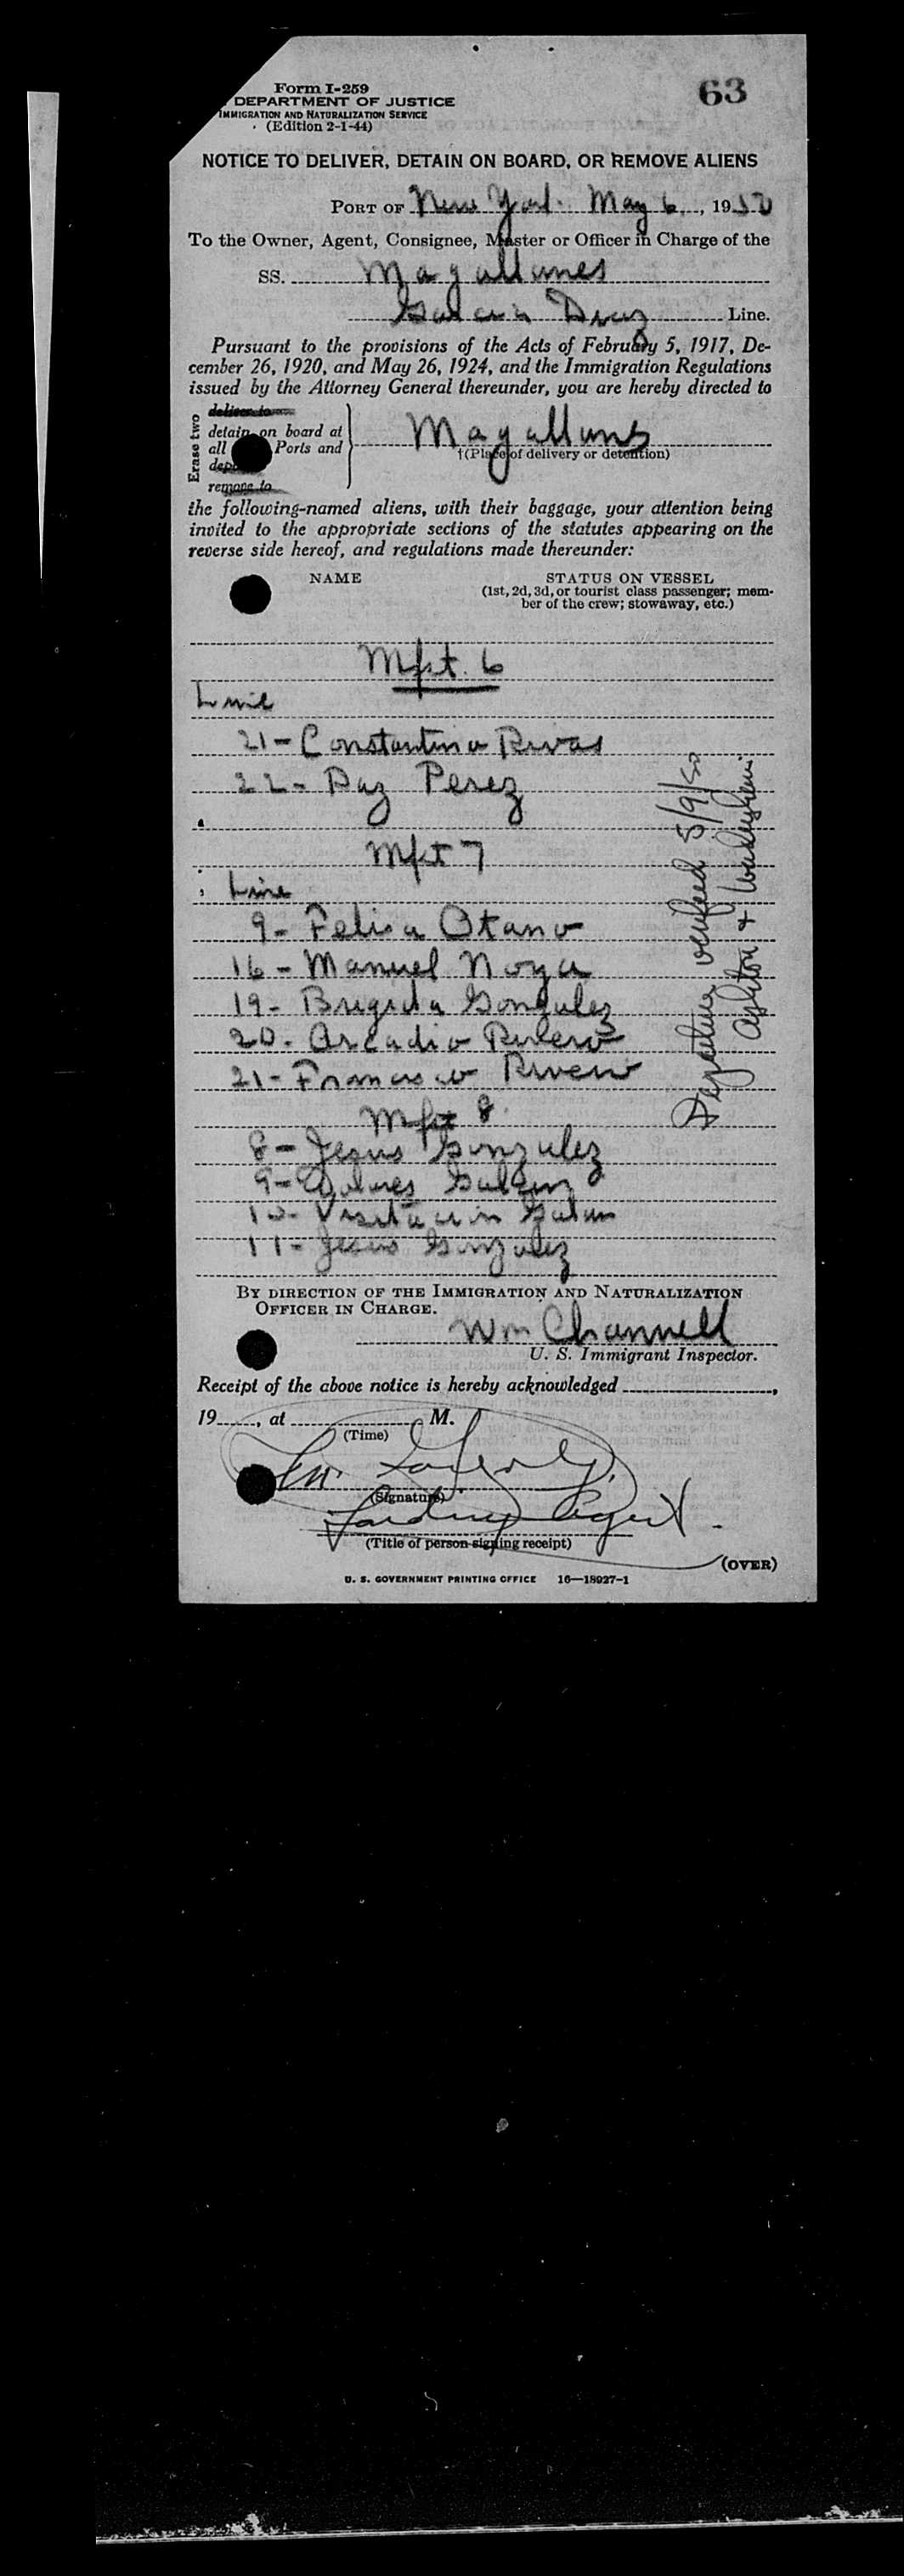 63
Form I-259
DEPARTMENT OF JUSTICE
IMMIGRATION AND NATURALIZATION SERVICE
(Edition 2-1-44)
NOTICE TO DELIVER, DETAIN ON BOARD, OR REMOVE ALIENS
PORT OF New York May 6, 1950
To the Owner, Agent, Consignee, Master or Officer in Charge of the
SS. Magallanes
Garcia Diaz Line.
Pursuant to the provisions of the Acts of February 5, 1917, De-
cember 26, 1920, and May 26, 1924, and the Immigration Regulations
issued by the Attorney General thereunder, you are hereby directed to
Erase two
deliver to
detain on board at
all Ports and
remove to
Magallanes
†(Place of delivery or detention)
the following-named aliens, with their baggage, your attention being
invited to the appropriate sections of the statutes appearing on the
reverse side hereof, and regulations made thereunder:
NAME
STATUS ON VESSEL
(1st, 2d, 3d, or tourist class passenger; mem-
ber of the crew; stowaway, etc.)
Mfst. 6
Line
21- Constantina Rivas
22- Paz Perez
Mfst 7
Line
9- Felisa Otano
16- Manuel Noya
19- Brigida Gonzalez
20- Arcadio Rivero
21- Francisco Rivero
Mfst 8
8- Jesus Gonzalez
9- Dolores
10- Visitacion Galan
11- Jesus Gonzalez
Departure verified 5/9/50
Ashton &
BY DIRECTION OF THE IMMIGRATION AND NATURALIZATION
OFFICER IN CHARGE.
Wm Channell
U. S. Immigrant Inspector.
Receipt of the above notice is hereby acknowledged
19 , at M.
(Time)
(Signature)
Landing Agent.
(Title of person signing receipt)
(OVER)
U. S. GOVERNMENT PRINTING OFFICE 16—18927-1